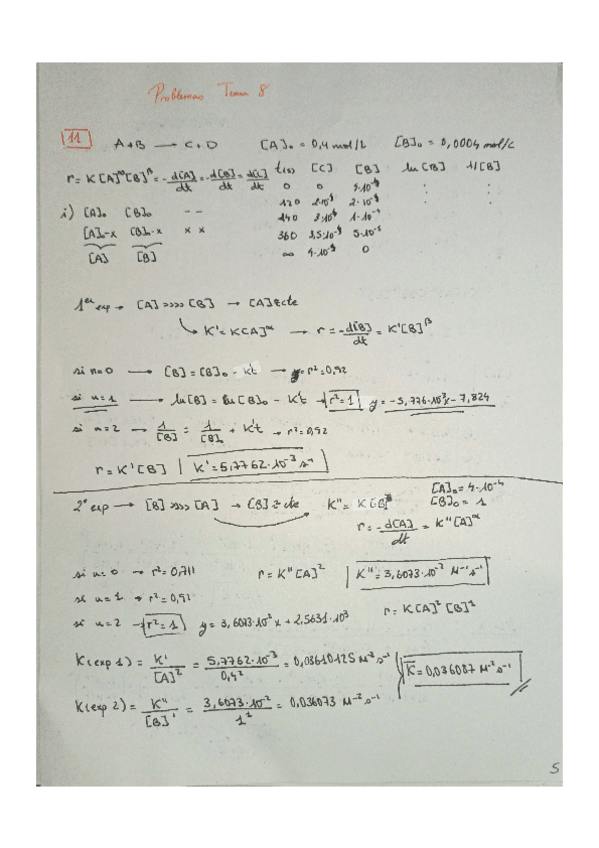 Problemas Tema 8
11 A+B → C+D [A]₀ = 0,4 mol/L [B]₀ = 0,0004 mol/L
r = K[A]^α[B]^β = -d[A]/dt = -d[B]/dt = d[C]/dt t(s) [C] [B] ln[B] 1/[B]
0 0 4·10⁻⁴
i) [A]₀ [B]₀ - - 120 2·10⁻⁴ 2·10⁻⁴
[A]₀-x [B]₀-x x x 240 3·10⁻⁴ 1·10⁻⁴
[A] [B] 360 3,5·10⁻⁴ 5·10⁻⁵
∞ 4·10⁻⁴ 0
1er exp → [A] >>>> [B] → [A] ≈ cte
K' = K[A]^α → r = -d[B]/dt = K'[B]^β
si n=0 → [B] = [B]₀ - K't → r² = 0,92
si n=1 → ln[B] = ln[B]₀ - K't → r²=1 y = -5,776·10⁻³x - 7,824
si n=2 → 1/[B] = 1/[B]₀ + K't → r² = 0,92
r = K'[B] | K' = 5,7762·10⁻³ s⁻¹
2º exp → [B] >>>> [A] → [B] ≈ cte K'' = K[B]^β [A]₀ = 4·10⁻⁴
[B]₀ = 1
r = -d[A]/dt = K''[A]^α
si n=0 → r² = 0,711 r = K''[A]² | K'' = 3,6073·10⁻² M⁻¹s⁻¹
si n=1 → r² = 0,92
si n=2 → r²=1 y = 3,6073·10⁻²x + 2,5631·10³ r = K[A]²[B]¹
K(exp 1) = K'/[A]² = 5,7762·10⁻³/0,4² = 0,03610125 M⁻²s⁻¹ K̅ = 0,036087 M⁻²s⁻¹
K(exp 2) = K''/[B]¹ = 3,6073·10⁻²/1² = 0,036073 M⁻²s⁻¹
5